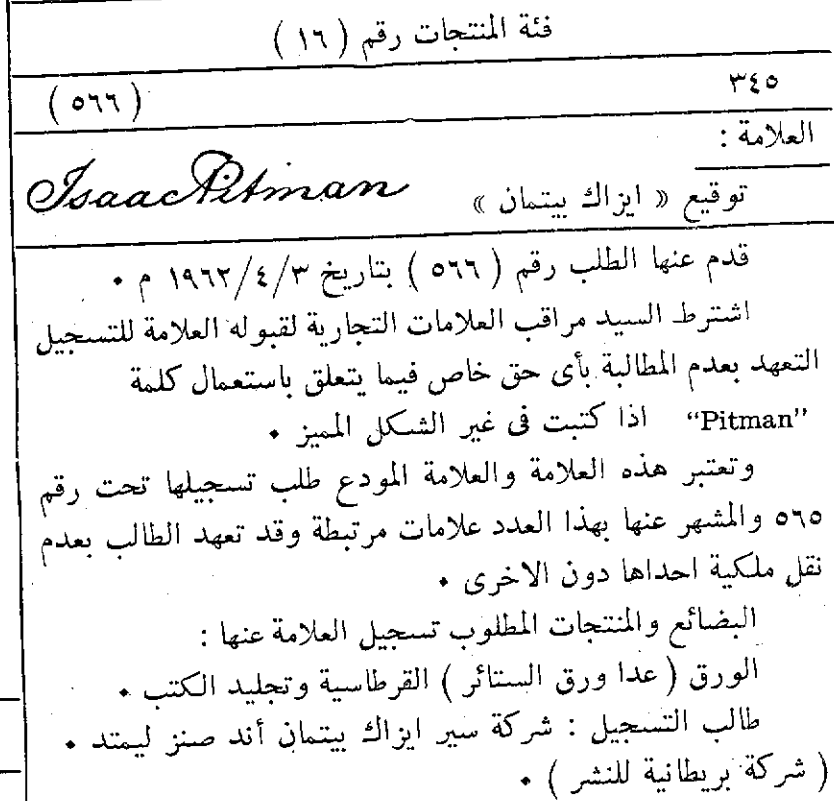 فئة المنتجات رقم ( ١٦ )
٣٤٥ ( ٥٦٦ )
العلامة :
توقيع « ايزاك بيتمان » Isaac Pitman
قدم عنها الطلب رقم ( ٥٦٦ ) بتاريخ ١٩٦٢/٤/٣ م ٠
اشترط السيد مراقب العلامات التجارية لقبوله العلامة للتسجيل
التعهد بعدم المطالبة بأى حق خاص فيما يتعلق باستعمال كلمة
“Pitman” اذا كتبت فى غير الشكل المميز ٠
وتعتبر هذه العلامة والعلامة المودع طلب تسجيلها تحت رقم
٥٦٥ والمشهر عنها بهذا العدد علامات مرتبطة وقد تعهد الطالب بعدم
نقل ملكية احداها دون الاخرى ٠
البضائع والمنتجات المطلوب تسجيل العلامة عنها :
الورق ( عدا ورق الستائر ) القرطاسية وتجليد الكتب ٠
طالب التسجيل : شركة سير ايزاك بيتمان أند صنز ليمتد ٠
( شركة بريطانية للنشر ) ٠